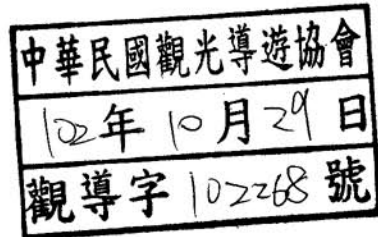 中華民國觀光導遊協會
102年10月29日
觀導字102268號